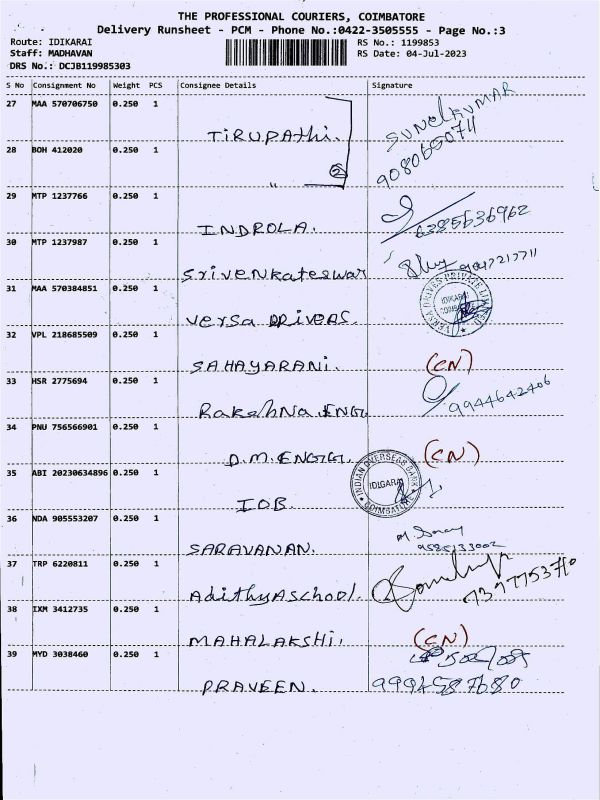 THE PROFESSIONAL COURIERS, COIMBATORE
Delivery Runsheet - PCM - Phone No.:0422-3505555 - Page No.:3
Route: IDIKARAI RS No.: 1199853
Staff: MADHAVAN RS Date: 04-Jul-2023
DRS No.: DCJB119985303
S No Consignment No Weight PCS Consignee Details Signature
27 MAA 570706750 0.250 1
TiRUPAthi. SUNILKUMAR
28 BOH 412020 0.250 1
" 2
29 MTP 1237766 0.250 1
INDROLA. 6385636962
30 MTP 1237987 0.250 1
Srivenkateswar
31 MAA 570384851 0.250 1
Versa DRIVERS. VERSA DRIVES PRIVATE LIMITED IDIKARAI
32 VPL 218685509 0.250 1
SAHAYARANi. (CN)
33 HSR 2775694 0.250 1
Rakshna ENGG 9944642406
34 PNU 756566901 0.250 1
D.M.ENGG. (CN)
35 ABI 20230634896 0.250 1
IOB INDIAN OVERSEAS BANK IDIGARAI COIMBATORE
36 NDA 905553207 0.250 1
SARAVANAN. 9585133002
37 TRP 6220811 0.250 1
Adithya School. 7397753710
38 IXM 3412735 0.250 1
MAHALAKSHI. (CN)
39 MYD 3038460 0.250 1
PRAVEEN. 9994587680